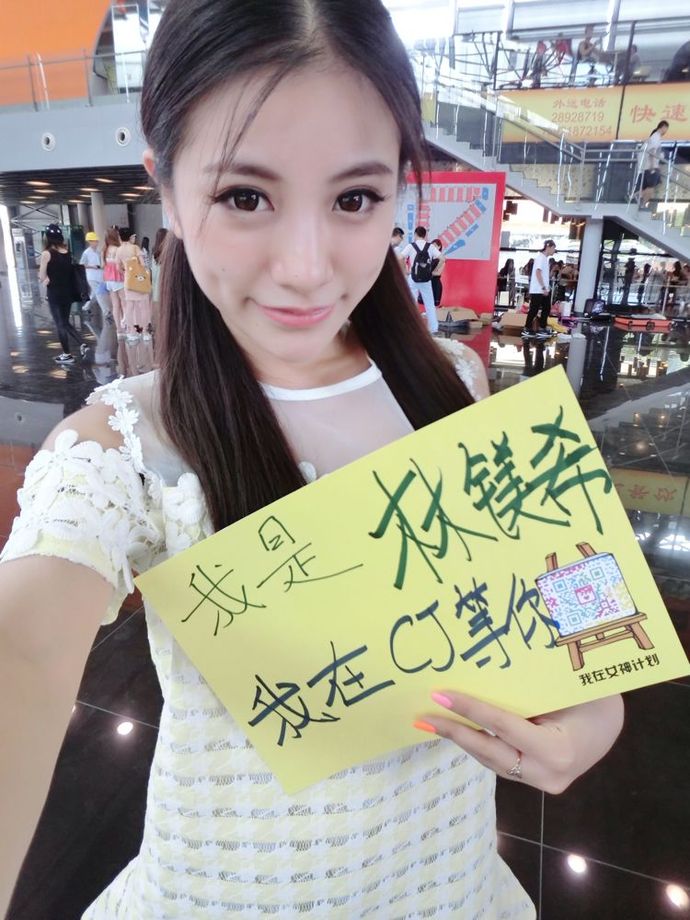 外送电话
28928719
61872154
快速
我是 林镁希
我在CJ等你
我在女神计划